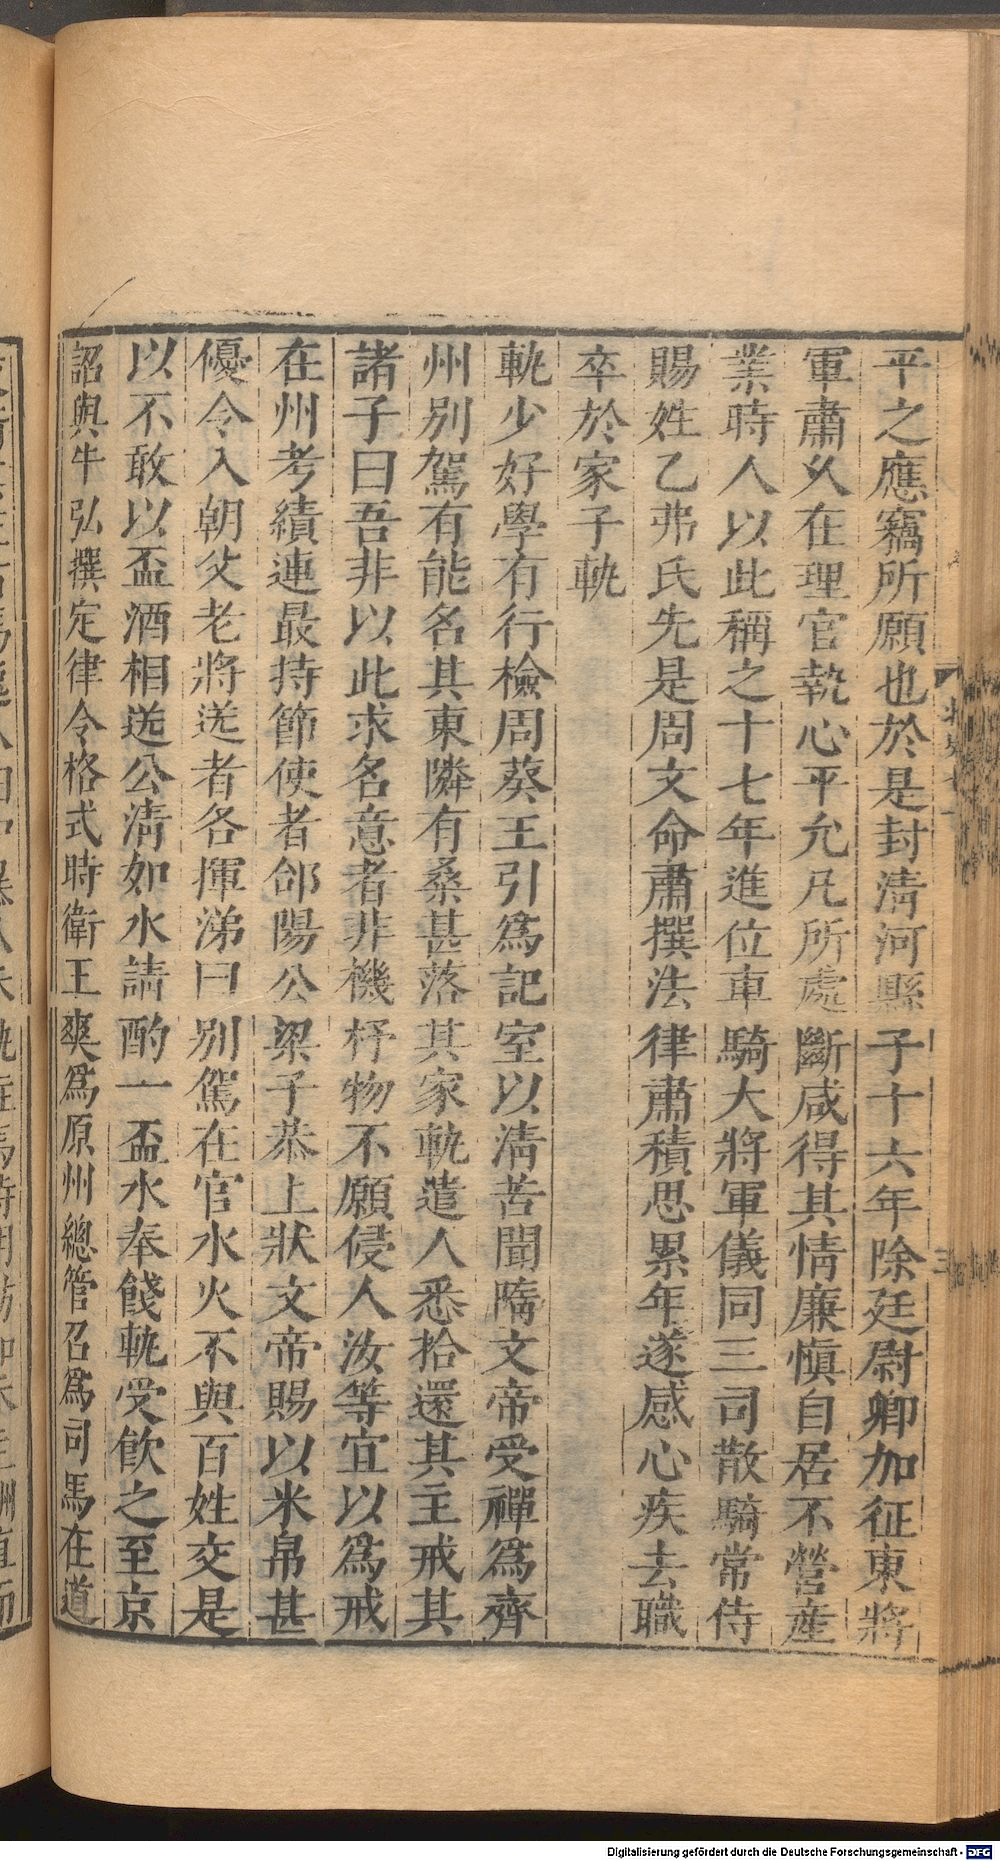 平之應竊所願也於是封淸河縣子十六年除廷尉卿加征東將
軍肅乆在理官執心平允凡所處斷咸得其情廉愼自居不營產
業時人以此稱之十七年進位車騎大將軍儀同三司散騎常侍
賜姓乙弗氏先是周文命肅撰法律肅積思累年遂感心疾去職
卒於家子軌
軌少好學有行檢周蔡王引爲記室以淸苦聞隋文帝受禪爲齊
州別駕有能名其東隣有桑葚落其家軌遣人悉拾還其主戒其
諸子曰吾非以此求名意者非機杼物不願侵人汝等宜以爲戒
在州考績連最持節使者郃陽公梁子恭上狀文帝賜以米帛甚
優令入朝父老將送者各揮涕曰別駕在官水火不與百姓交是
以不敢以盃酒相送公淸如水請酌一盃水奉餞軌受飮之至京
詔與牛弘撰定律令格式時衛王爽爲原州總管召爲司馬在道
Digitalisierung gefördert durch die Deutsche Forschungsgemeinschaft - DFG